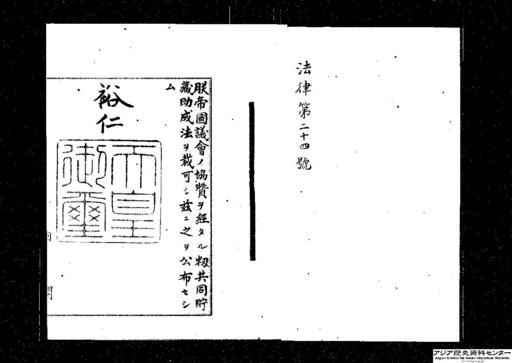 法律第二十四號
朕帝國議會ノ協贊ヲ經タル籾共同貯
藏助成法ヲ裁可シ茲ニ之ヲ公布セシ
ム
裕仁
天皇
御璽
アジア歴史資料センター
Japan Center for Asian Historical Records